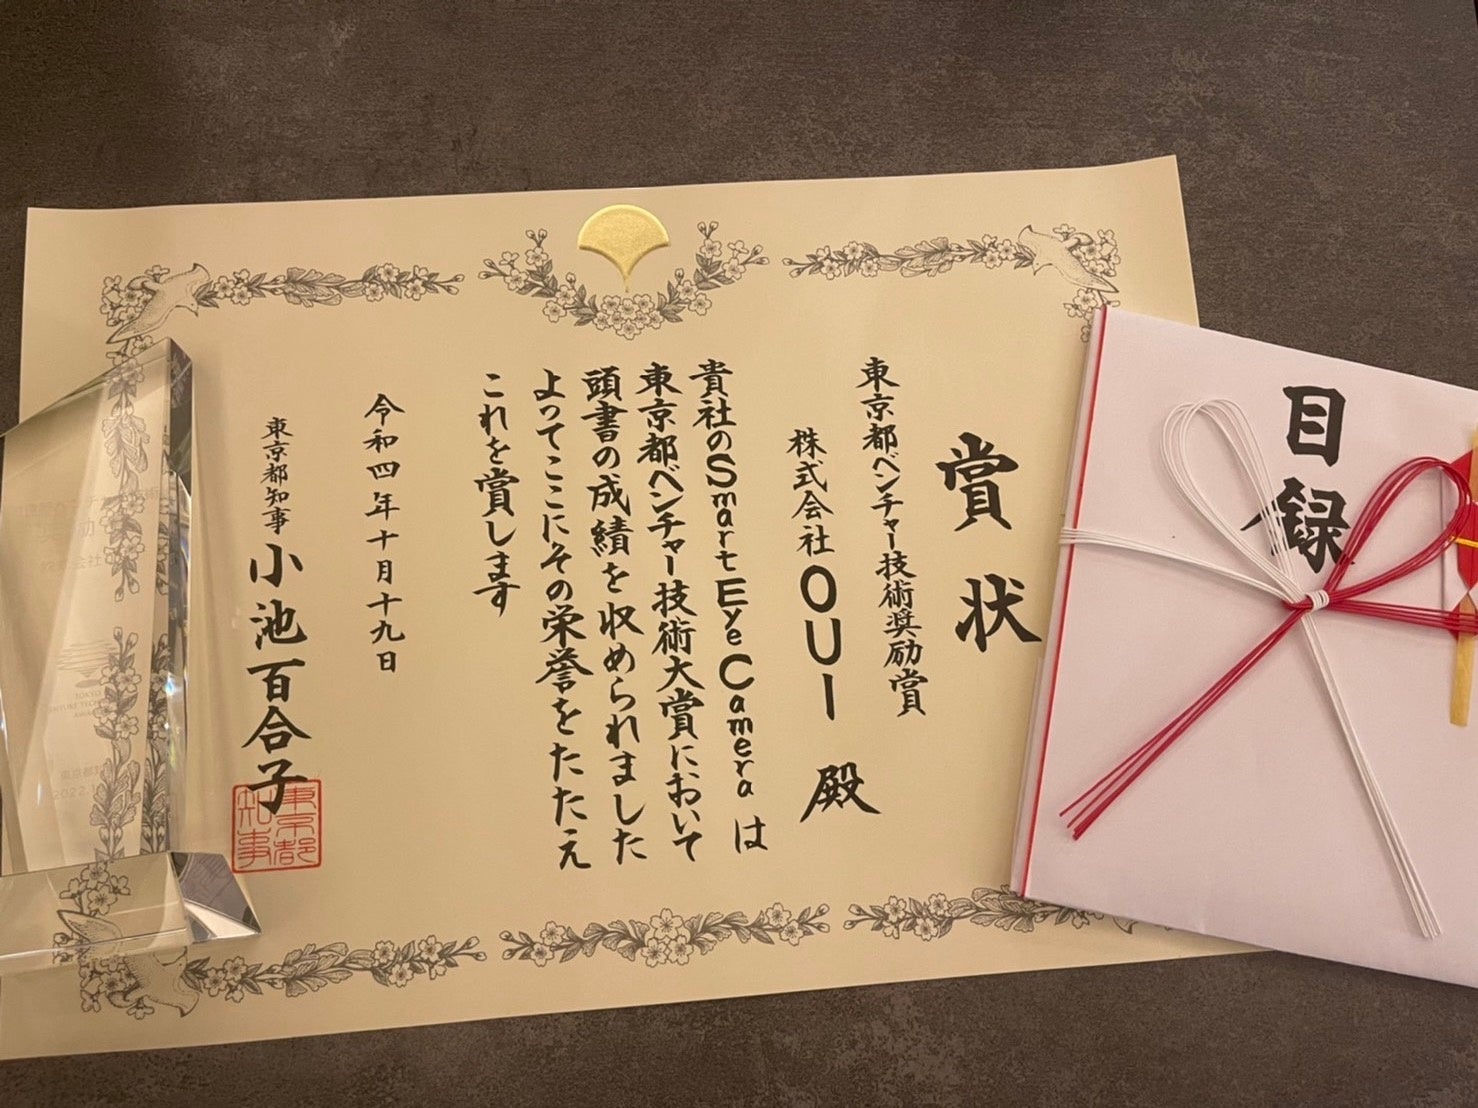 賞状
東京都ベンチャー技術奨励賞
株式会社OUI 殿
貴社のSmart Eye Cameraは
東京都ベンチャー技術大賞において
頭書の成績を収められました
よってここにその栄誉をたたえ
これを賞します
令和四年十月十九日
東京都知事 小池百合子
東京都知事
目録
TOKYO
AWARD